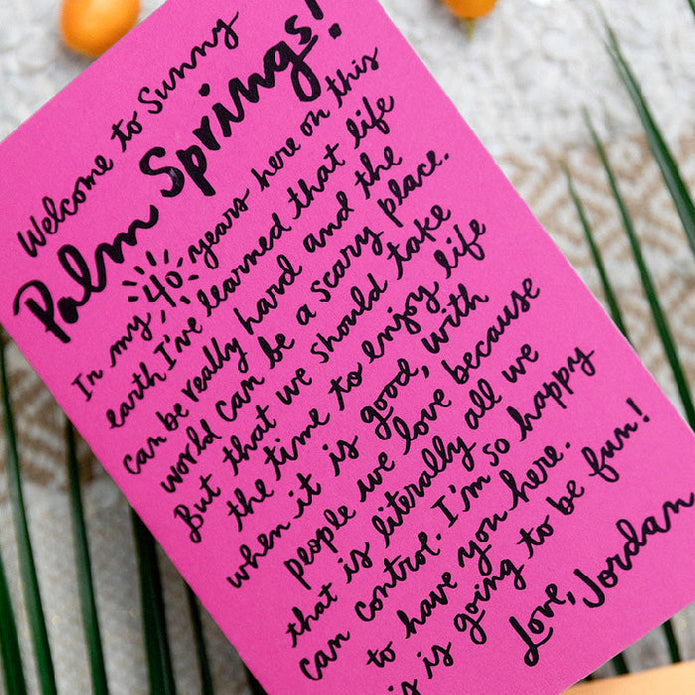 Welcome to Sunny
Palm Springs!
In my 40 years here on this
earth I've learned that life
can be really hard and the
world can be a scary place.
But that we should take
the time to enjoy life
when it is good, with
people we love because
that is literally all we
can control. I'm so happy
to have you here.
is is going to be fun!
Love, Jordan